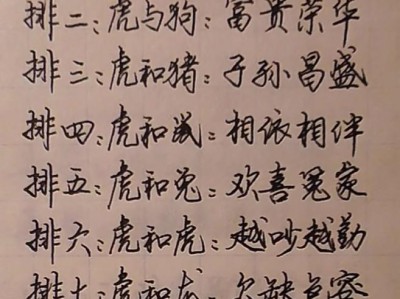 排二:虎与狗:富贵荣华
排三:虎和猪:子孙昌盛
排四:虎和鼠:相依相伴
排五:虎和兔:欢喜冤家
排六:虎和虎:越吵越勤
排七:虎和龙:欠缺包容